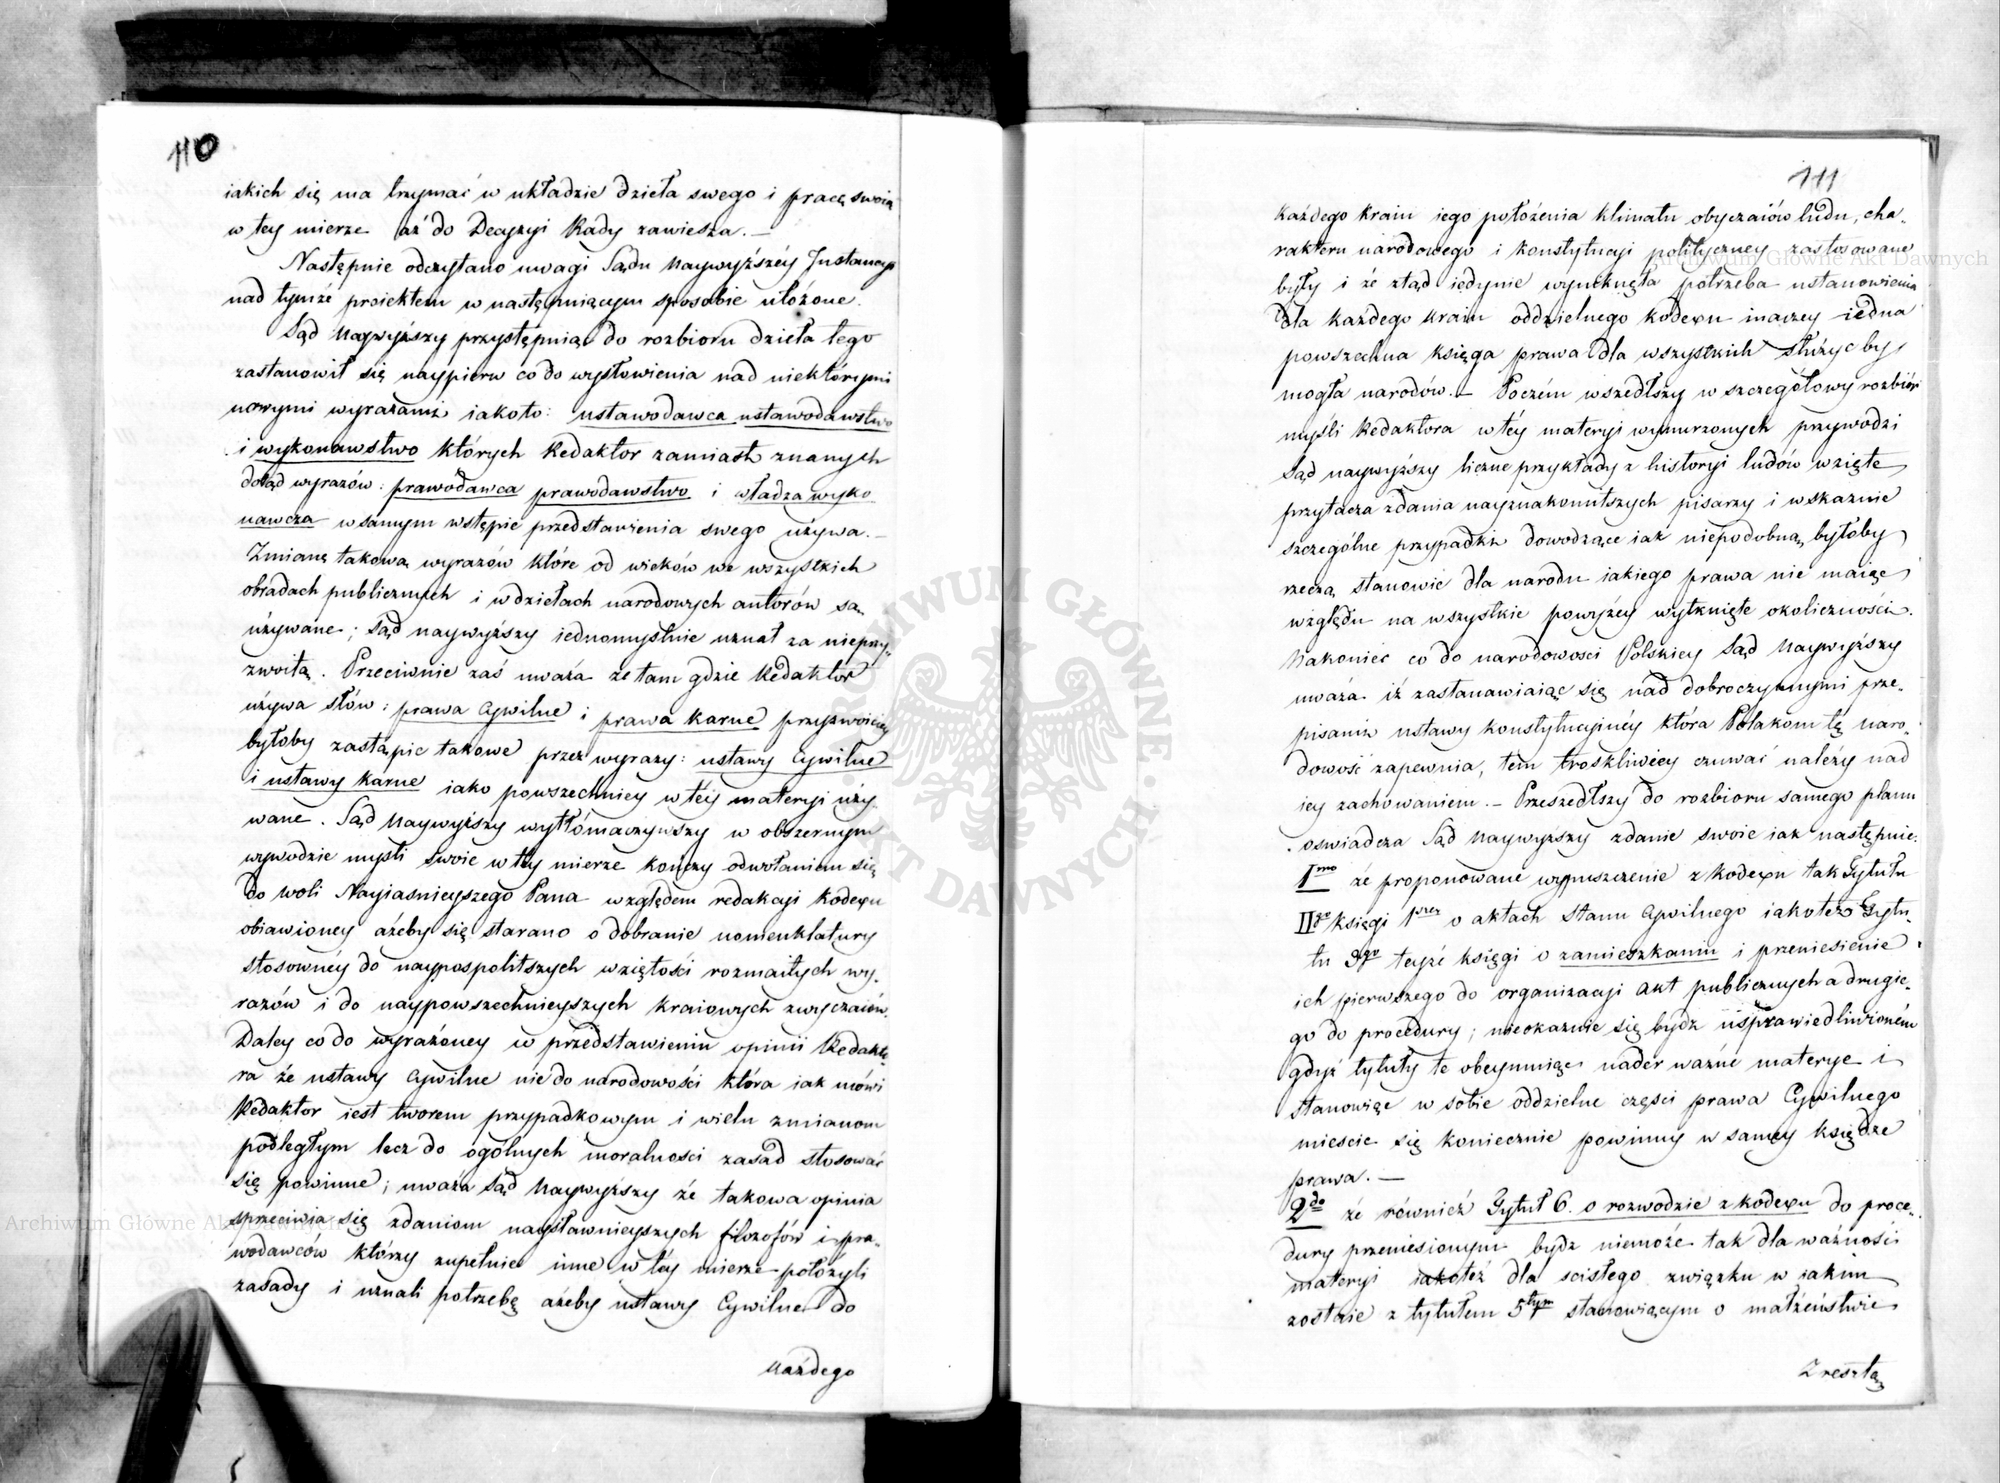 110
iakich się ma trzymać w układzie dzieła swego i pracę swoią
w tey mierze aż do Decyzyi Rady zawiesza. —
Następnie odczytano uwagi Sądu Naywyższéy Instancyi
nad tymże proiektem w następuiącym sposobie ułożone.
Sąd Naywyższy przystępuiąc do rozbioru dzieła tego
zastanowił się naypierw co do wysłowienia nad niektórymi
nowymi wyrazami iakoto: ustawodawca ustawodawstwo
i wykonawstwo których Redaktor zamiast znanych
dotąd wyrazów: prawodawca prawodawstwo i władza wyko-
nawcza w samym wstępie przedstawienia swego używa. —
Zmianę takową wyrazów które od wieków we wszystkich
obradach publicznych i w dziełach narodowych autorów są
używane; Sąd naywyższy iednomyślnie uznał za nieprzy-
zwoitą. Przeciwnie zaś uważa że tam gdzie Redaktor
używa słów: prawa Cywilne i prawa karne przyzwoiciey
byłoby zastąpic takowe przez wyrazy: ustawy Cywilne
i ustawy karne iako powszechniey w téy materyi uży-
wane. Sąd Naywyższy wytłómaczywszy w obszernym
wywodzie myśli swoie w tey mierze kończy odwołaniem się
do woli Nayiasnieyszego Pana względem redakcyi kodexu
obiawioney ażeby się starano o dobranie nomenklatury
stosownéy do naypospolitszych wziętości rozmaitych wy-
razów i do naypowszechnieyszych kraiowych zwyczaiów.
Daley co do wyrażoney w przedstawieniu opinii Redakto-
ra że ustawy cywilne nie do narodowości która iak mówi
Redaktor iest tworem przypadkowym i wielu zmianom
podległym lecz do ogólnych moralności zasad stosować
się powinne; uważa Sąd Naywyższy że takowa opinia
sprzeciwia się zdaniom naysławnieyszych filozofów i pra-
wodawców którzy zupełnie inne w tey mierze położyli
zasady i uznali potrzebę ażeby ustawy Cywilne do
każdego
111
każdego kraiu iego położenia klimatu obyczaiów ludu, cha-
rakteru narodowego i konstytucyi polityczney zastosowane
były i że ztąd iedynie wyniknęła potrzeba ustanowienia
dla każdego kraiu oddzielnego kodexu inaczey iedna
powszechna księga prawa dla wszystkich służyc by
mogła narodów. — Poczém wszedłszy w szczegółowy rozbiór
myśli Redaktora w téy materyi wynurzonych przywodzi
Sąd naywyższy liczne przykłady z historyi ludów wzięte
przytacza zdania nayznakomitszych pisarzy i wskazuie
szczególne przypadki dowodzące iak niepodobną byłoby
rzeczą stanowić dla narodu iakiego prawa nie maiąc
względu na wszystkie powyżey wytknięte okoliczności.
Nakoniec co do narodowosci Polskiey Sąd Naywyższy
uważa iż zastanawiaiąc się nad dobroczynnymi prze-
pisami ustawy konstytucyinéy która Polakom tę naro-
dowość zapewnia, tem troskliwiey czuwać należy nad
iey zachowaniem. — Przeszedłszy do rozbioru samego planu
oswiadcza Sąd Naywyższy zdanie swoie iak następuie:
1mo że proponowane wypuszczenie z kodexu tak Tytułu
IIgo księgi 1wszey o aktach stanu cywilnego iakoteż Tytu-
łu 3go teyże księgi o zamieszkaniu i przeniesienie
ich pierwszego do organizacyi akt publicznych a drugie-
go do procedury; nieokazuie się bydz usprawiedliwioném
gdyż tytuły te obeymuiąc nader ważne materye i
stanowiąc w sobie oddzielne części prawa Cywilnego
miescic się koniecznie powinny w samey księdze
prawa. —
2do że również Tytuł 6. o rozwodzie z kodexu do proce-
dury przeniesionym bydz niemoże tak dla ważności
materyi iakoteż dla scisłego związku w iakim
zostaie z tytułem 5tym stanowiącym o małżeństwie
Zresztą
Archiwum Główne Akt Dawnych
Archiwum Główne Akt Dawnych
ARCHIWUM GŁÓWNE AKT DAWNYCH